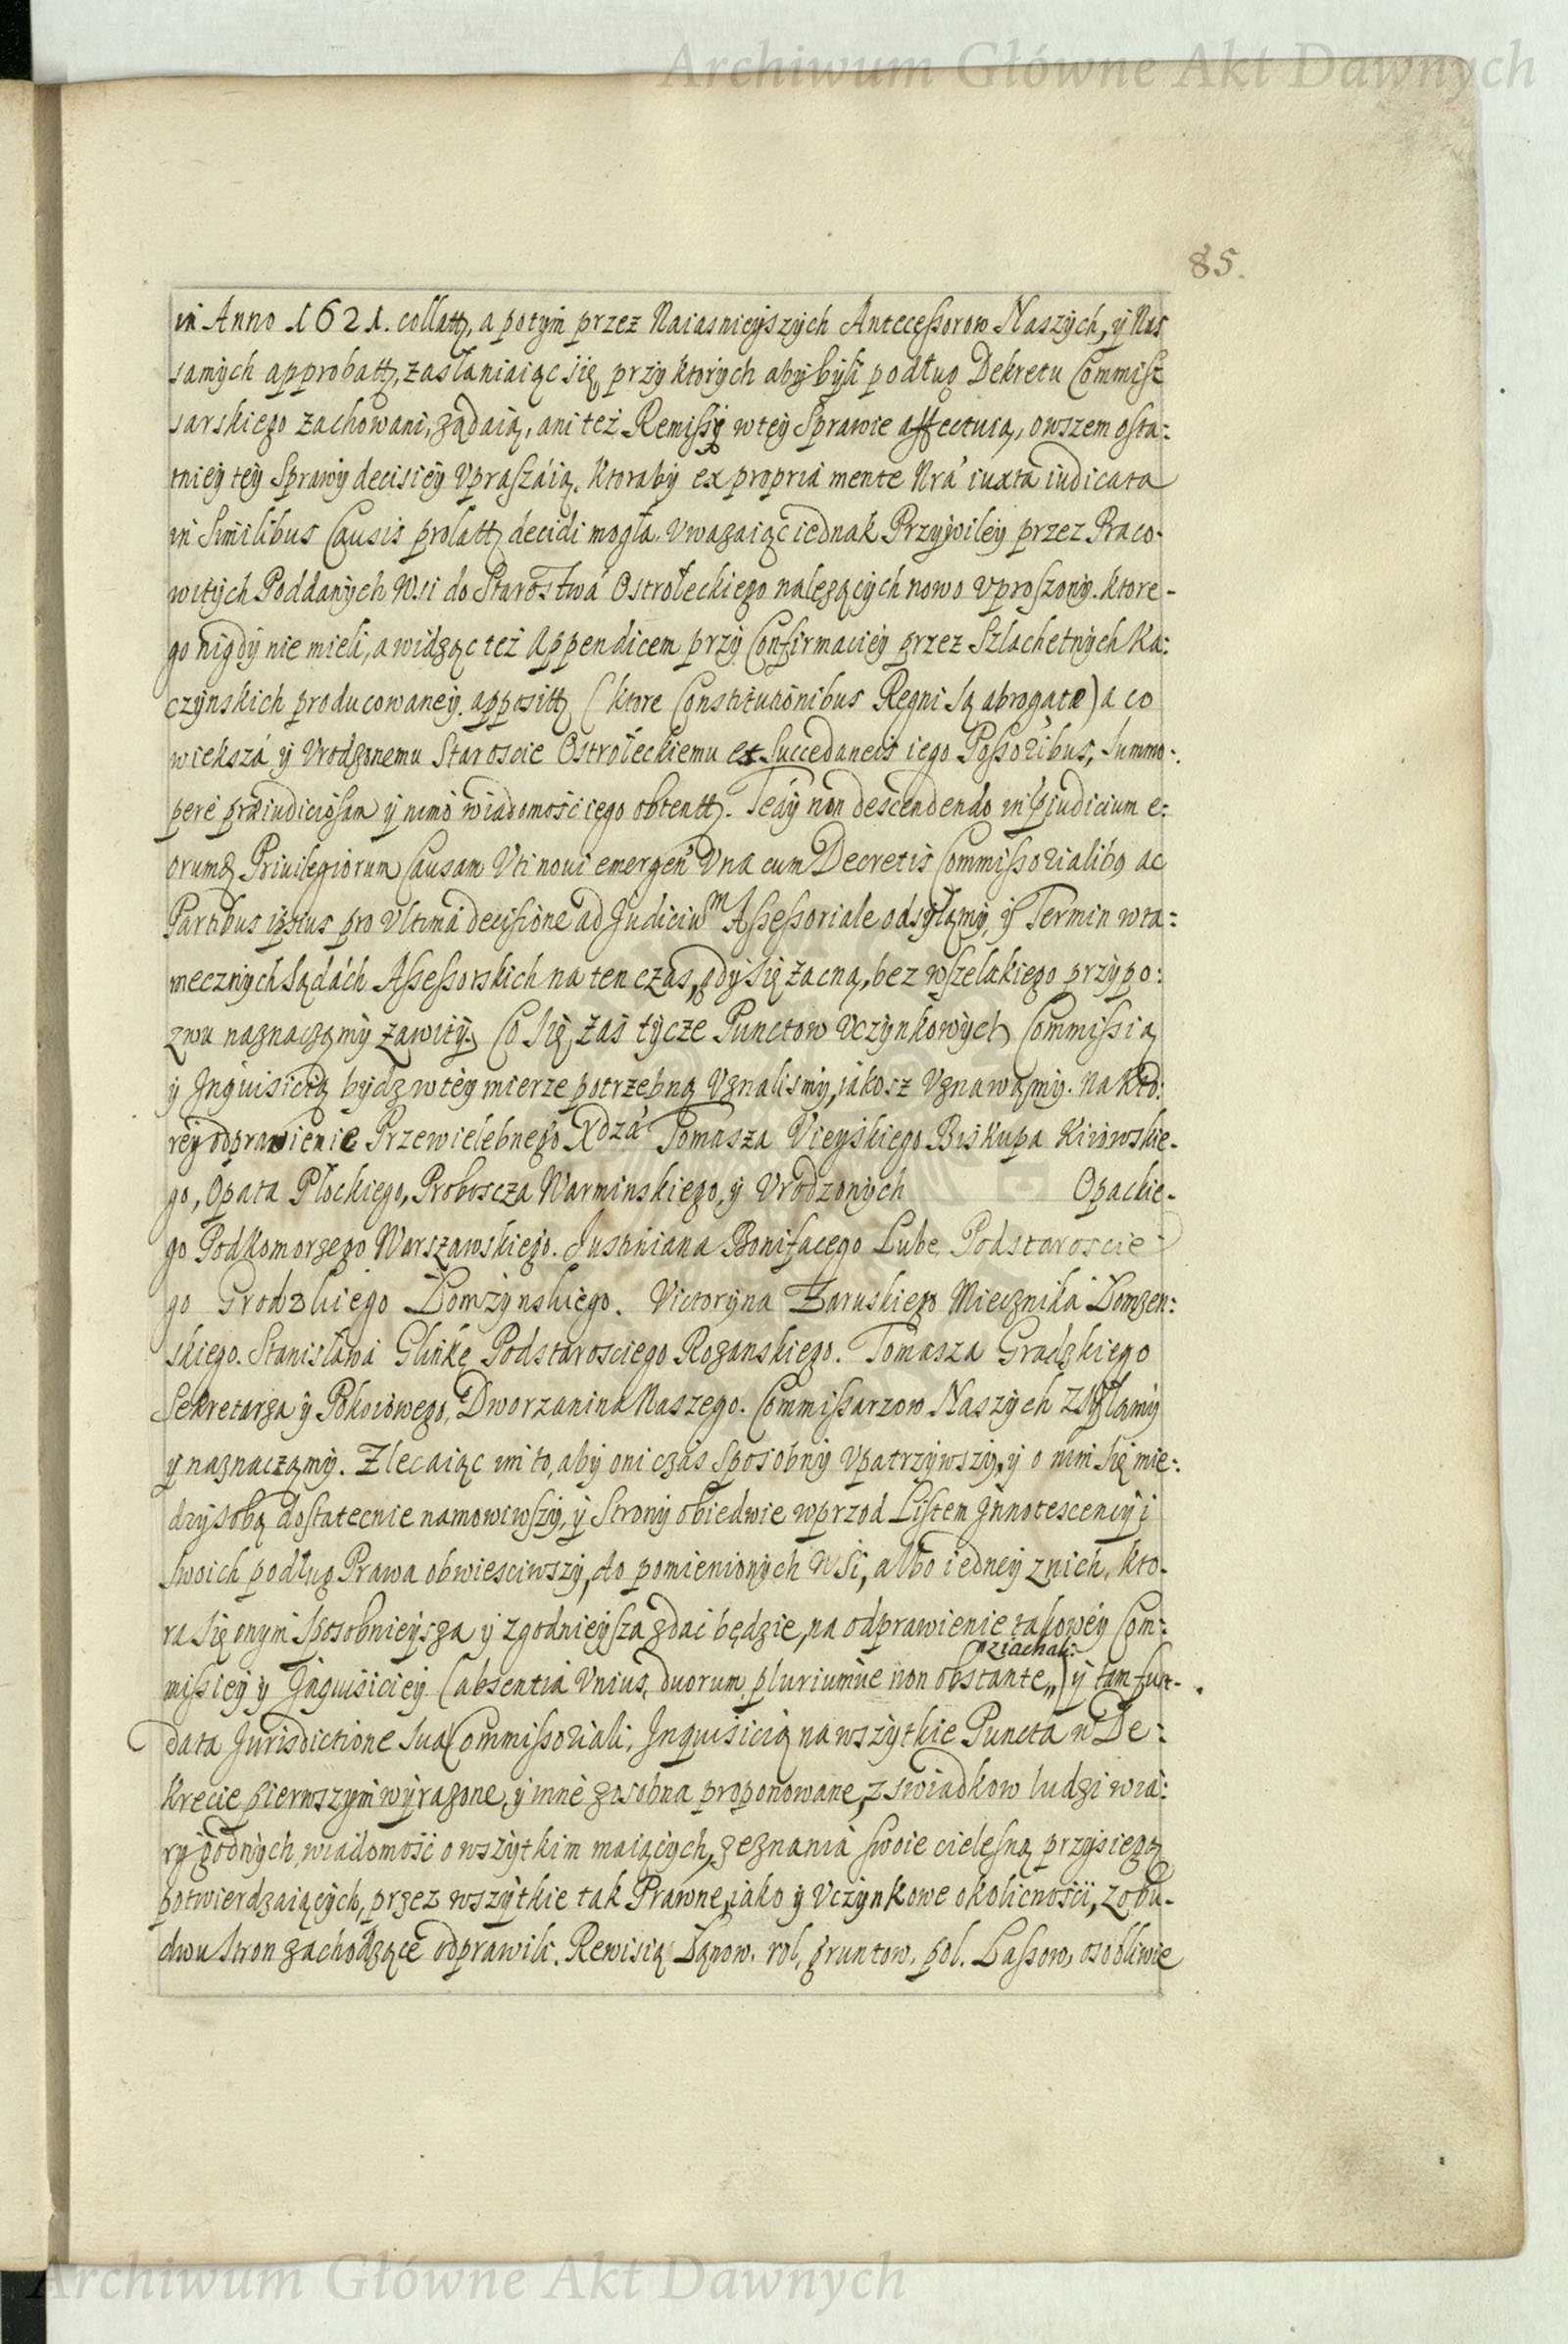 Archiwum Główne Akt Dawnych
85.
in Anno 1621. collatt, a potym przez Naiasnieyszych Antecessorow Naszych, y Nas
samych approbatt, zasłaniaiąc się, przy ktorych aby byli podług Dekretu Commis
sarskiego zachowani, ządaią, ani też Remissy w tey Sprawie affectuią, owszem osta:
tniey tey Sprawy decisiey Vpraszáią. Ktoraby ex propria mente Nrá iuxta iudicata
in Similibus Causis prolatt decidi mogła. Vwazaiąc iednak Przywiley przez Praco-
witych Poddanych Wsi do Starostwá Ostrołeckiego nalezących nowo Vproszony. ktore-
go nigdy nie mieli, a widząc też Appendicem przy Confirmaciey przez Szlachetnych Ka:
czynskich producowaney. appositt (ktore Constitutionibus Regni są abrogatæ) a co
wieksza y Vrodzonemu Staroscie Ostrołeckiemu et Succedaneis iego Possoribus, summo-
pere præiudiciosam y nimo wiadomość iego obtentt. Tedy non descendendo in piudicium e:
orumq Priuilegiorum Causam Vti noui emergen Vna cum Decretis Commissorialibq ac
Partibus ipsius pro Vltima decisione ad Judicium Assessoriale odsyłamy, y Termin w ta:
mecznych Sądách Assessorskich na ten czas, gdy się zacną, bez wszelakiego przypo:
zwu naznaczamy zawity. Co się zaś tycze Punctow Vczynkowych Commissią
y Inquisicią bydz w tey mierze potrzebną Vznalismy, iakosz Vznawamy. Na kto:
rey odprawienie Przewielebnego Xdzá Tomasza Vieyskiego Biskupa Kiiowskie-
go, Opata Płockiego, Proboscza Warminskiego, y Vrodzonych Opackie-
go Podkomorzego Warszawskiego. Justiniana Bonifacego Lube Podstaroscie
go Grodzkiego Łomżynskiego. Victoryna Zaruskiego Miecznika Łomzen:
skiego. Stanisława Glinkę Podstarosciego Rozanskiego. Tomasza Gradzkiego
Sekretarza y Pokoiowego, Dworzanina Naszego. Commissarzow Naszych Zsyłamy
y naznaczamy. Zlecaiąc im to, aby oni czás sposobny Vpatrzywszy, y o nim się mie:
dzy sobą dostatecnie namowiwszy, y Strony obiedwie wprzod Listem Jnnotescencyi
swoich podług Prawa obwiesciwszy, do pomienionych Wsi, albo iedney znich, kto-
ra się onym sposobnieysza y zgodnieysza zdać będzie, na odprawienie takowey Com:
nziachali:
missiey y Inquisiciey (absentia Vnius, duorum, pluriumue non obstante,,) y tam fun-
data Jurisdictione sua Commissoriali, Jnquisicią na wszytkie Puncta w De:
krecie pierwszym wyrazone, y inne zosobna proponowane, z swiadkow ludzi wia:
ry godnych, wiadomość o wszytkim maiących, zeznania swoie cielesną przysięgą
potwierdzaiących, przez wszytkie tak Prawne, iako y Vczynkowe okolicności, z obu-
dwu Stron zachodzące odprawili. Rewisią Łąnow. rol, gruntow, pol. Lassow, osobliwie
Archiwum Główne Akt Dawnych